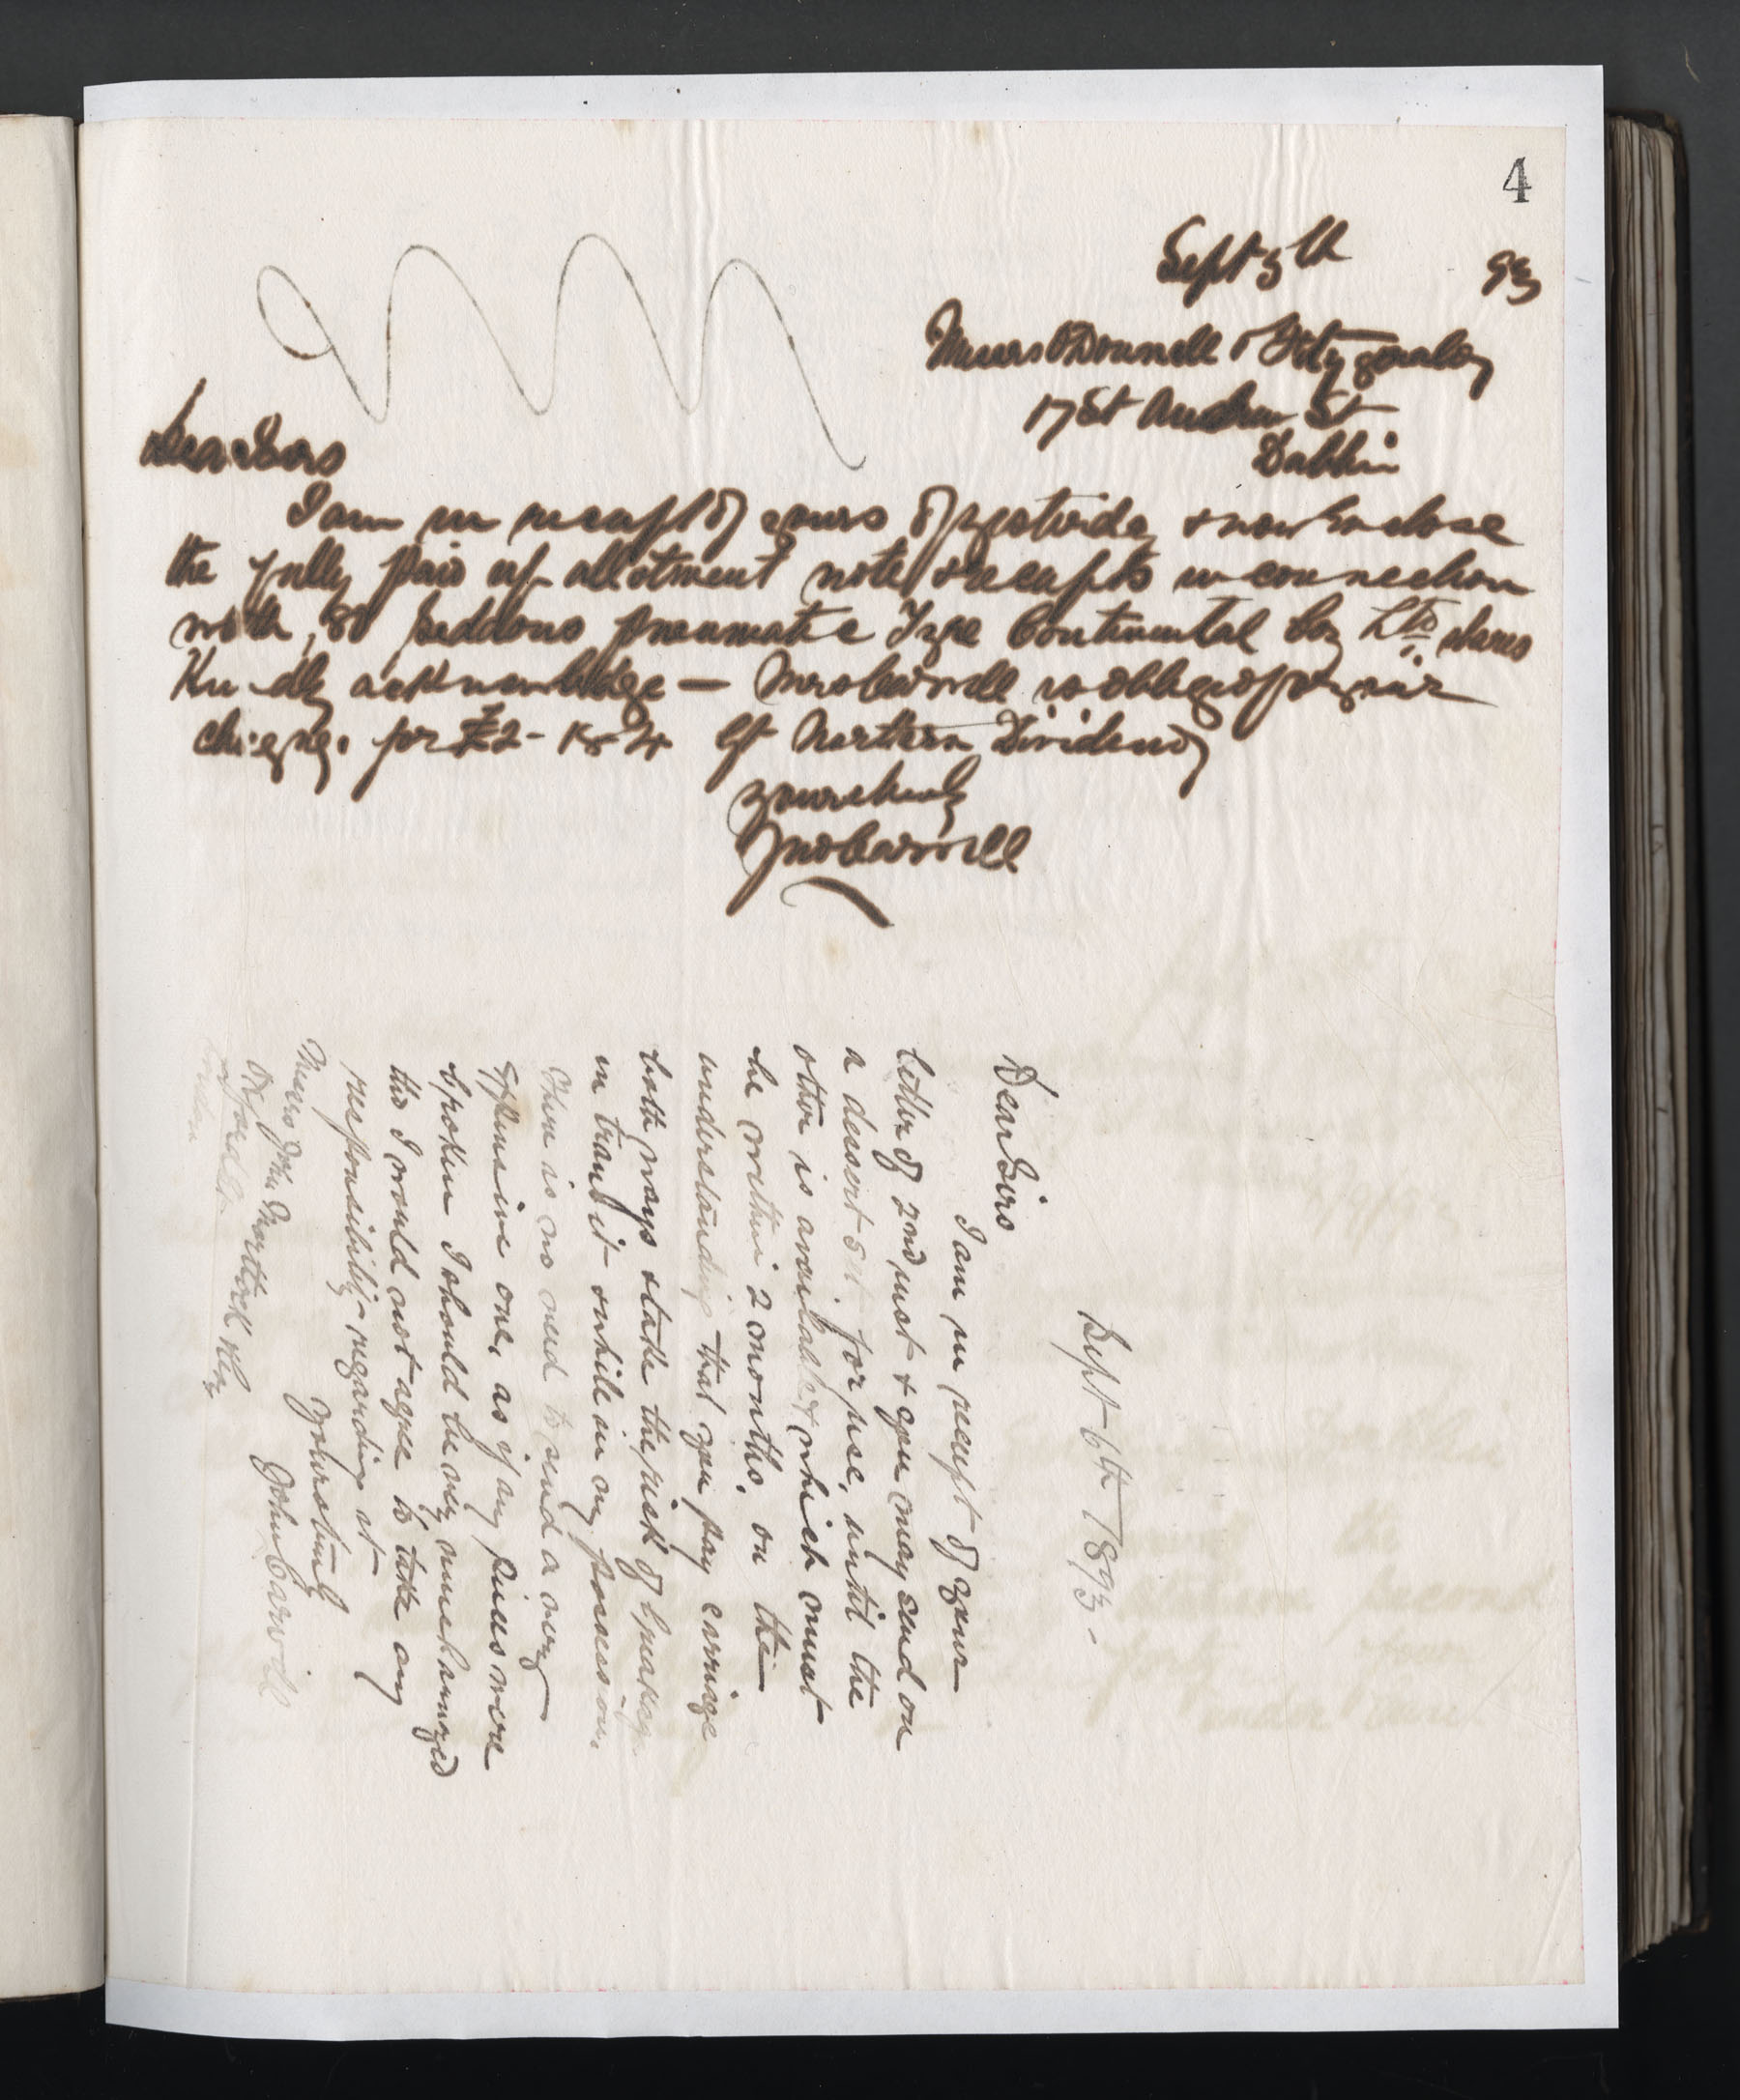 4
Sept 5th 93
Messrs O'Donnell & Fitzgerald
17 St Andrew St
Dublin
Dear Sirs
I am in receipt of yours of yesterday & now enclose
the fully paid up allotment note & receipts in connection
with 80 Seddons pneumatic Tyre Continental Coy Ltd shares
Kindly acknowledge — Mrs Carroll is obliged for your
cheque for £2 - Gt Northern Dividend
yours truly
Jno Carroll
Sept 6th 1893 -
Dear Sirs
I am in receipt of your
letter of 2nd inst & you may send on
a dessert set for use, until the
other is available & which must
be within 2 months. on the
understanding that you pay carriage
both ways & take the risk of breakage
in transit & while in my possession.
There is no need to send a very
expensive one, as if any pieces were
broken I should be very much annoyed
tho I would not agree to take any
responsibility regarding it
Yours truly
John Carroll
Messrs John Mortlock & Co
Oxford St.
London